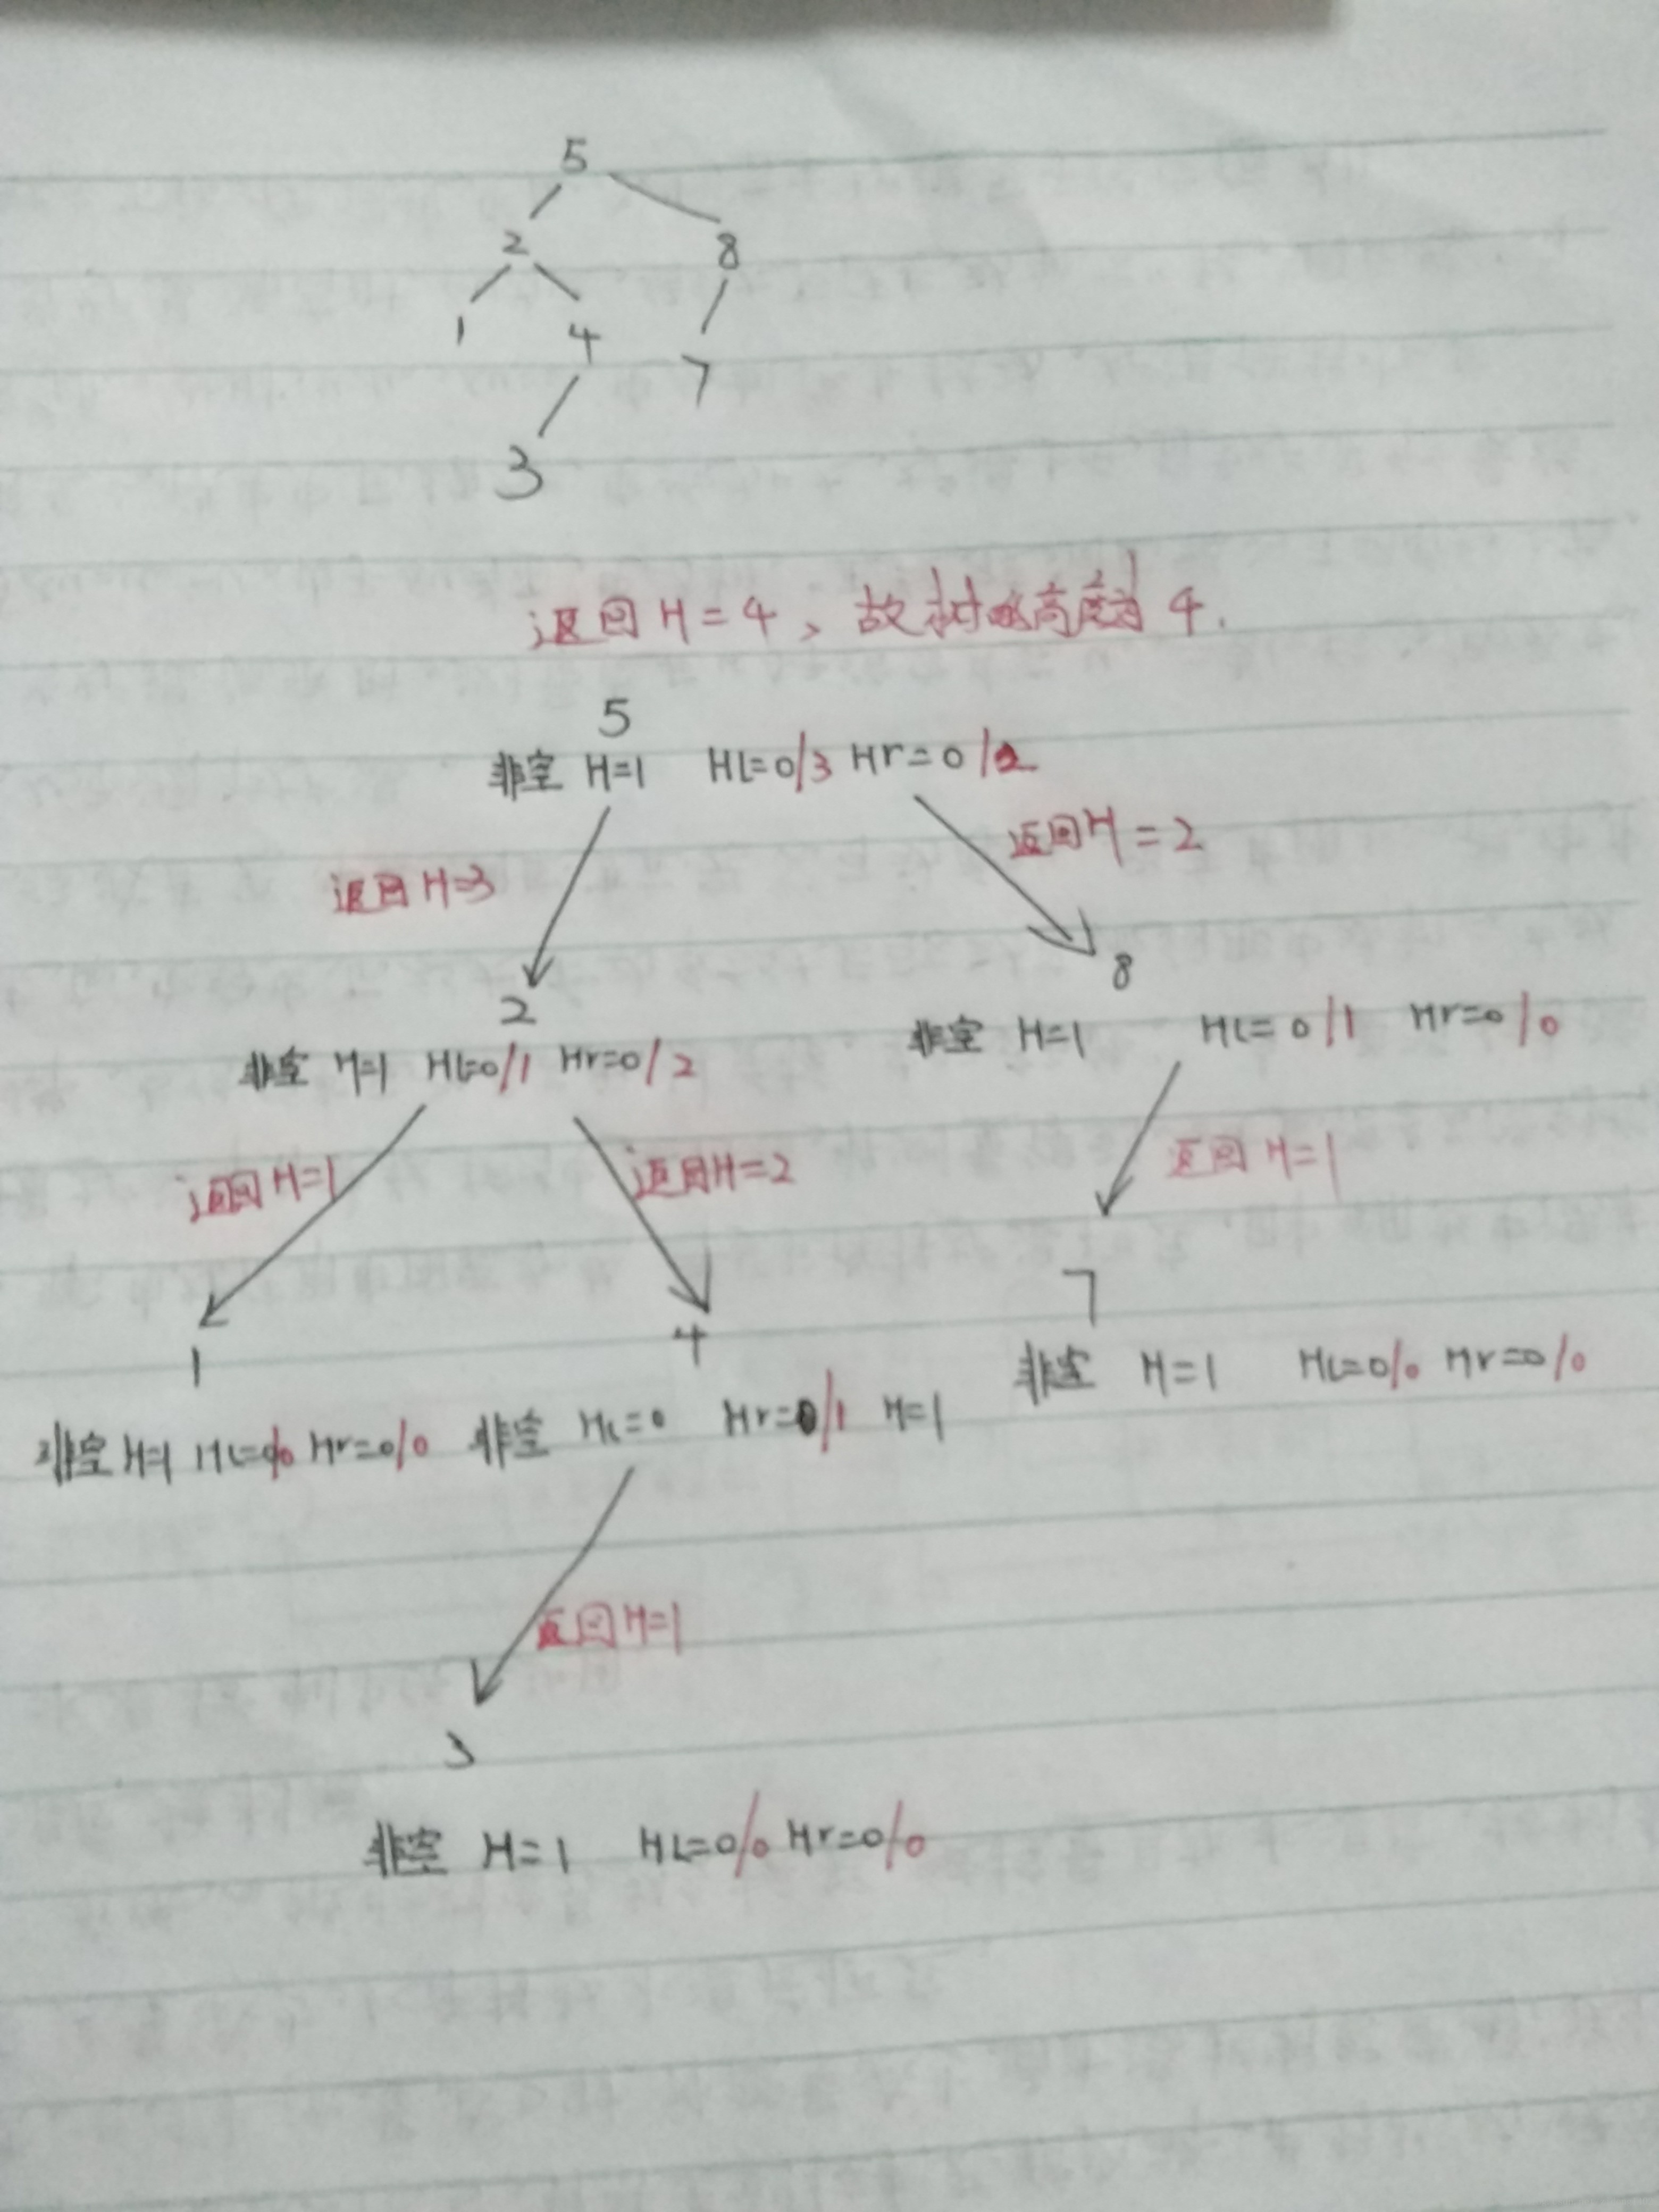 5
2 8
1 4 7
3
返回H=4、故树的高度为4.
5
非空 H=1 HL=0/3 Hr=0/2
返回H=3 返回H=2
2 8
非空 H=1 HL=0/1 Hr=0/2 非空 H=1 HL=0/1 Hr=0/0
返回H=1 返回H=2 返回H=1
1 4 7
非空 H=1 HL=0/0 Hr=0/0 非空 HL=0 Hr=0/1 H=1 非空 H=1 HL=0/0 Hr=0/0
返回H=1
3
非空 H=1 HL=0/0 Hr=0/0